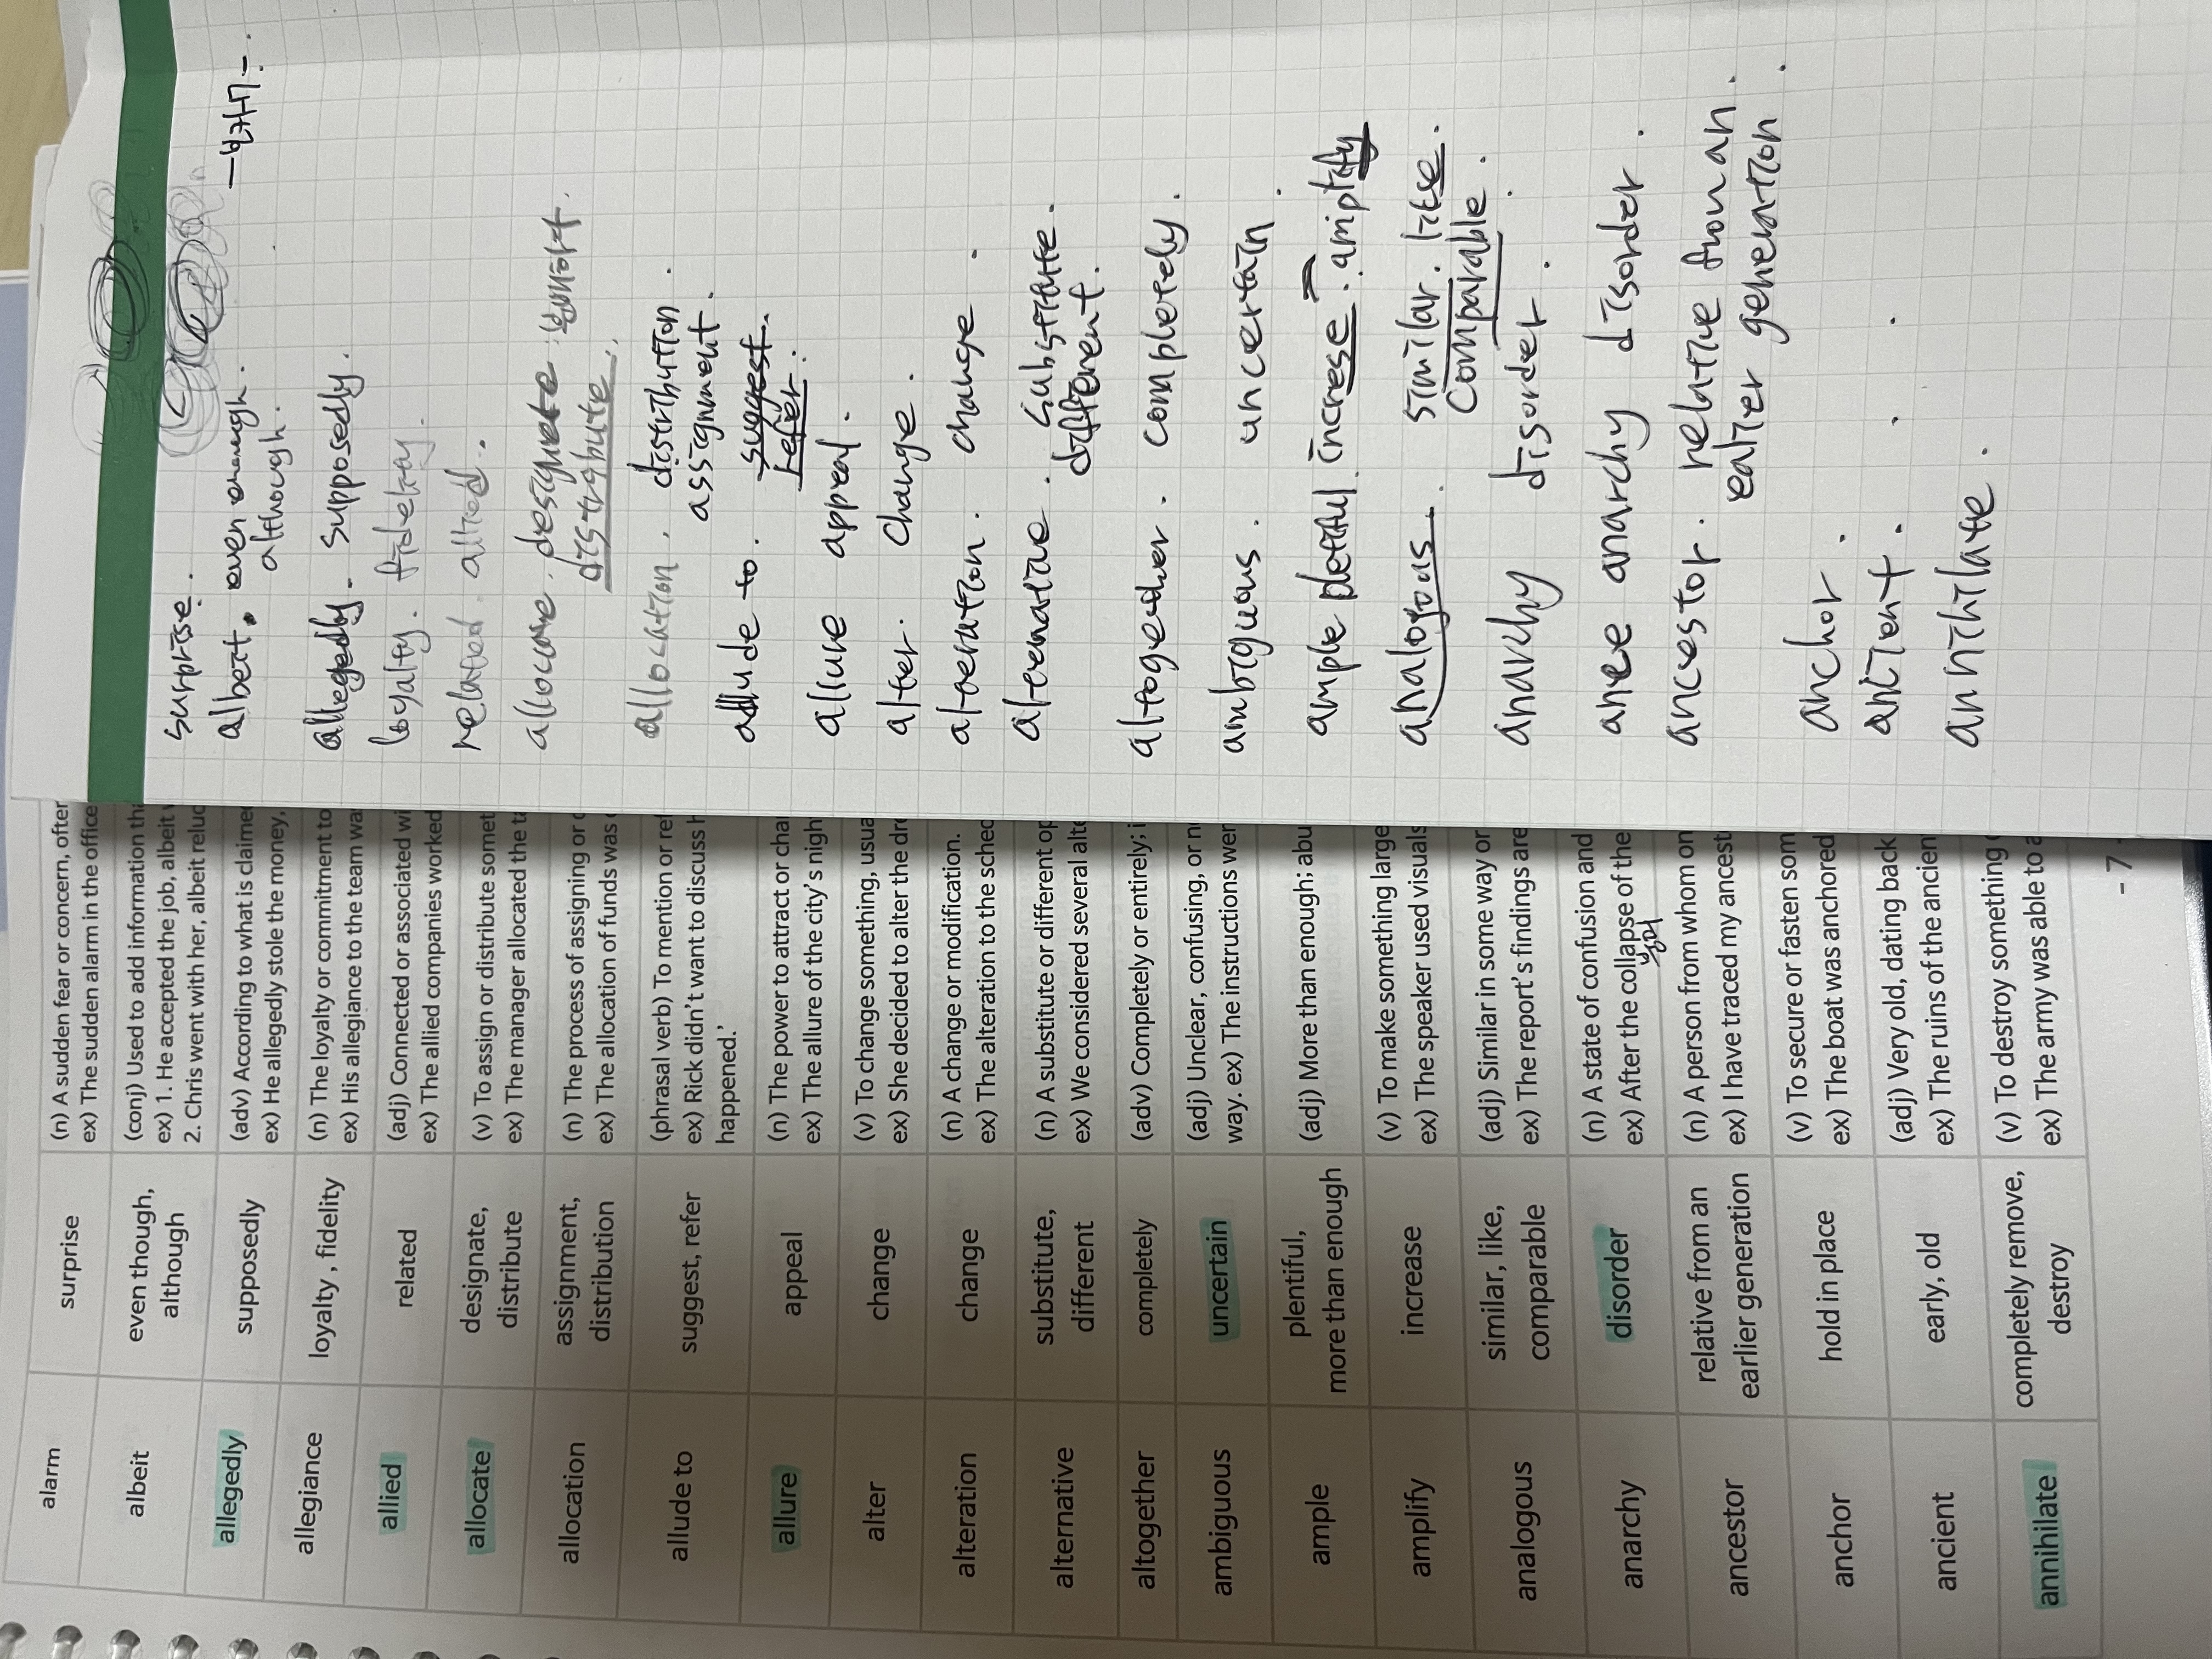 alarm
surprise
(n) A sudden fear or concern, often
ex) The sudden alarm in the office
albeit
even though,
although
(conj) Used to add information tha
ex) 1. He accepted the job, albeit
2. Chris went with her, albeit reluc
allegedly
supposedly
(adv) According to what is claimed
ex) He allegedly stole the money,
allegiance
loyalty , fidelity
(n) The loyalty or commitment to
ex) His allegiance to the team wa
allied
related
(adj) Connected or associated wi
ex) The allied companies worked
allocate
designate,
distribute
(v) To assign or distribute somet
ex) The manager allocated the ta
allocation
assignment,
distribution
(n) The process of assigning or
ex) The allocation of funds was
allude to
suggest, refer
(phrasal verb) To mention or ref
ex) Rick didn't want to discuss
happened.'
allure
appeal
(n) The power to attract or cha
ex) The allure of the city's nigh
alter
change
(v) To change something, usua
ex) She decided to alter the dre
alteration
change
(n) A change or modification.
ex) The alteration to the sched
alternative
substitute,
different
(n) A substitute or different op
ex) We considered several alte
altogether
completely
(adv) Completely or entirely; i
ambiguous
uncertain
(adj) Unclear, confusing, or n
way. ex) The instructions wer
ample
plentiful,
more than enough
(adj) More than enough; abu
amplify
increase
(v) To make something large
ex) The speaker used visuals
analogous
similar, like,
comparable
(adj) Similar in some way or
ex) The report's findings are
anarchy
disorder
(n) A state of confusion and
ex) After the collapse of the
붕괴
ancestor
relative from an
earlier generation
(n) A person from whom on
ex) I have traced my ancest
anchor
hold in place
(v) To secure or fasten som
ex) The boat was anchored
ancient
early, old
(adj) Very old, dating back
ex) The ruins of the ancien
annihilate
completely remove,
destroy
(v) To destroy something
ex) The army was able to a
- 7
surprise.
albeit. even
although.
allegedly. supposedly.
loyalty. fidelity.
related. allied.
distribute.
allocation. distribution.
assignment.
allude to. suggest.
refer.
allure appeal.
alter. change.
alteration. change.
alternative. substitute.
different.
altogether. completely.
ambiguous. uncertain.
ample increse. amplify
analogous. similar. like.
comparable.
anarchy disorder.
anarchy disorder.
ancestor. relative from an.
ealier generation.
anchor.
ancient.
annihilate.